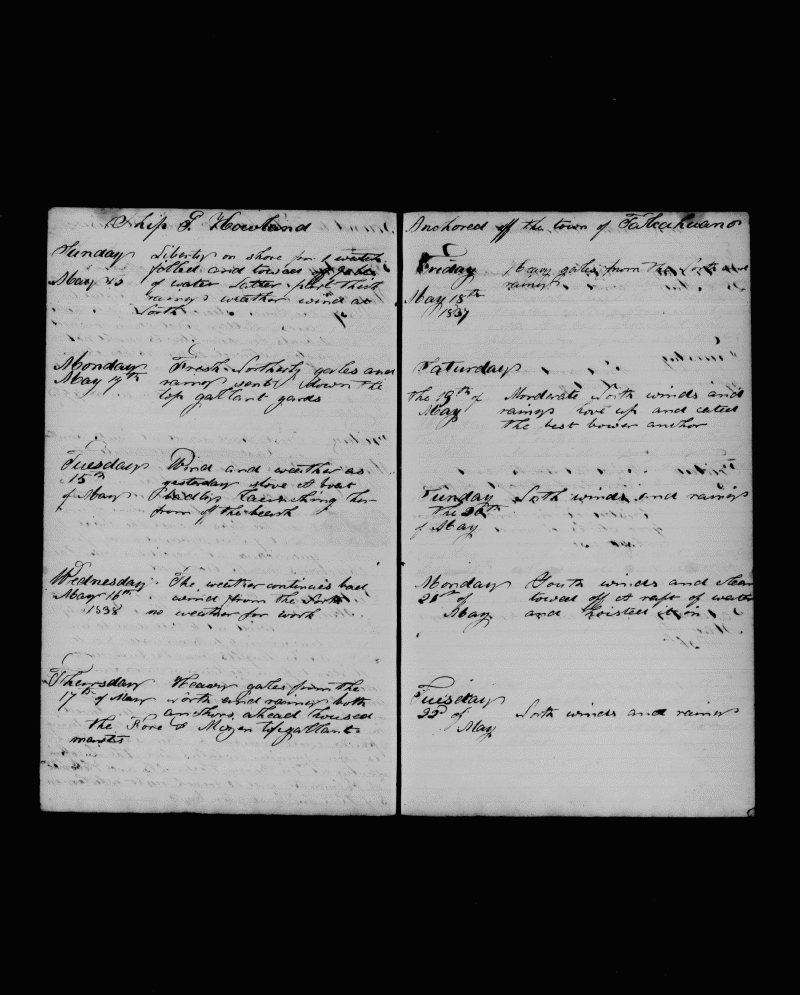 Ship G Howland
Sunday Liberty on shore for 1 watch
filled and towed off
May 13 of water latter part thick
rainy weather wind at
North
Monday Fresh Northerly gales and
May 14th rainy sent down the
top gallant yards
Tuesday Wind and weather as
15th yesterday stove A boat
of May badly launching her
from off the beach
Wednesday The weather continues bad
May 16th wind from the North
1838 no weather for work
Thursday Heavy gales from the
17th of May north and rainy both
anchors ahead housed
the Fore & Mizen topgallant
masts
Anchored off the town of Talcahuano
Friday Heavy gales from the North and
rainy
May 18th
1837
Saturday
the 19th of Morderate North winds and
May rainy hove up and cated
the best bower anchor
Sunday North winds and rainy
the 20th
of May
Monday South winds and clear
21st of towed off A raft of water
May and hoisted it in
Tuesday
22d of North winds and rainy
May